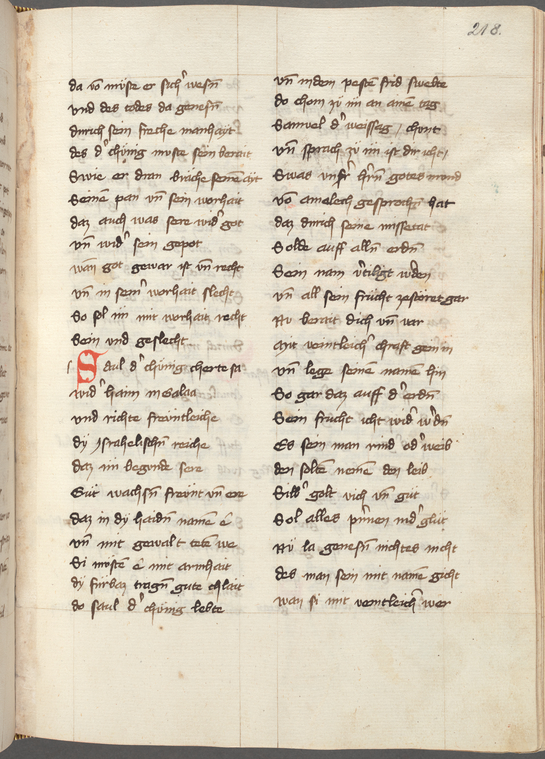 218.
da vō müste er sich' wesn̄
vnd des todes da genesn̄
durich sein freche manhait
des d' chünig müste sein berait
Swie er dran bräche seinē ait
Seinen pan vn̄ sein worhait
daz auch was sere wid' got
vn̄ wid' sein gepot
wan got gewar ist vn̄ recht
vn̄ in sein' worhait slecht
So sol im mit worhait recht
Sein vnd geslecht
Saul d' chünig cherte sa
wid' haim in Galaa
vnd richte frewntleiche
dy ysrahelischn̄ reiche
daz im begonde sere
Gut wachsn̄ frewnt vn̄ ere
daz in dy haidn̄ namē ē
vn̄ mit gewalt tetē we
Si müstē ē mit armhait
dy fürbaz tragn̄ gute chlait
do saul d' chünig lebte
vn̄ in dem pestē frid swebte
do chom zü im an ainē tag
Samuel d' weissag / chunt
vn̄ sprach zü im ist dir icht /
Swas vnser h'rn̄ gotes mund
vō amalech gesprochn̄ hat
daz durich seine missetat
Solde auff alln̄ erdn̄
Sein nam v'tilgt w'den
vn̄ all sein frücht zestöret gar
Nv berait dich vn̄ var
Mit veintleich' chraft gem in
vn̄ lege seinē namē hin
So gar daz auff d' erdn̄
Sein frucht icht wid' w'dn̄
Es sein man kind od' weib
den soltu nemē den leib
Silb' golt vich vn̄ gut
Sol alles prinen in d' glut
Nv la genesn̄ nichtes nicht
des man sein mit namē gicht
wan si mit veintleich' wer